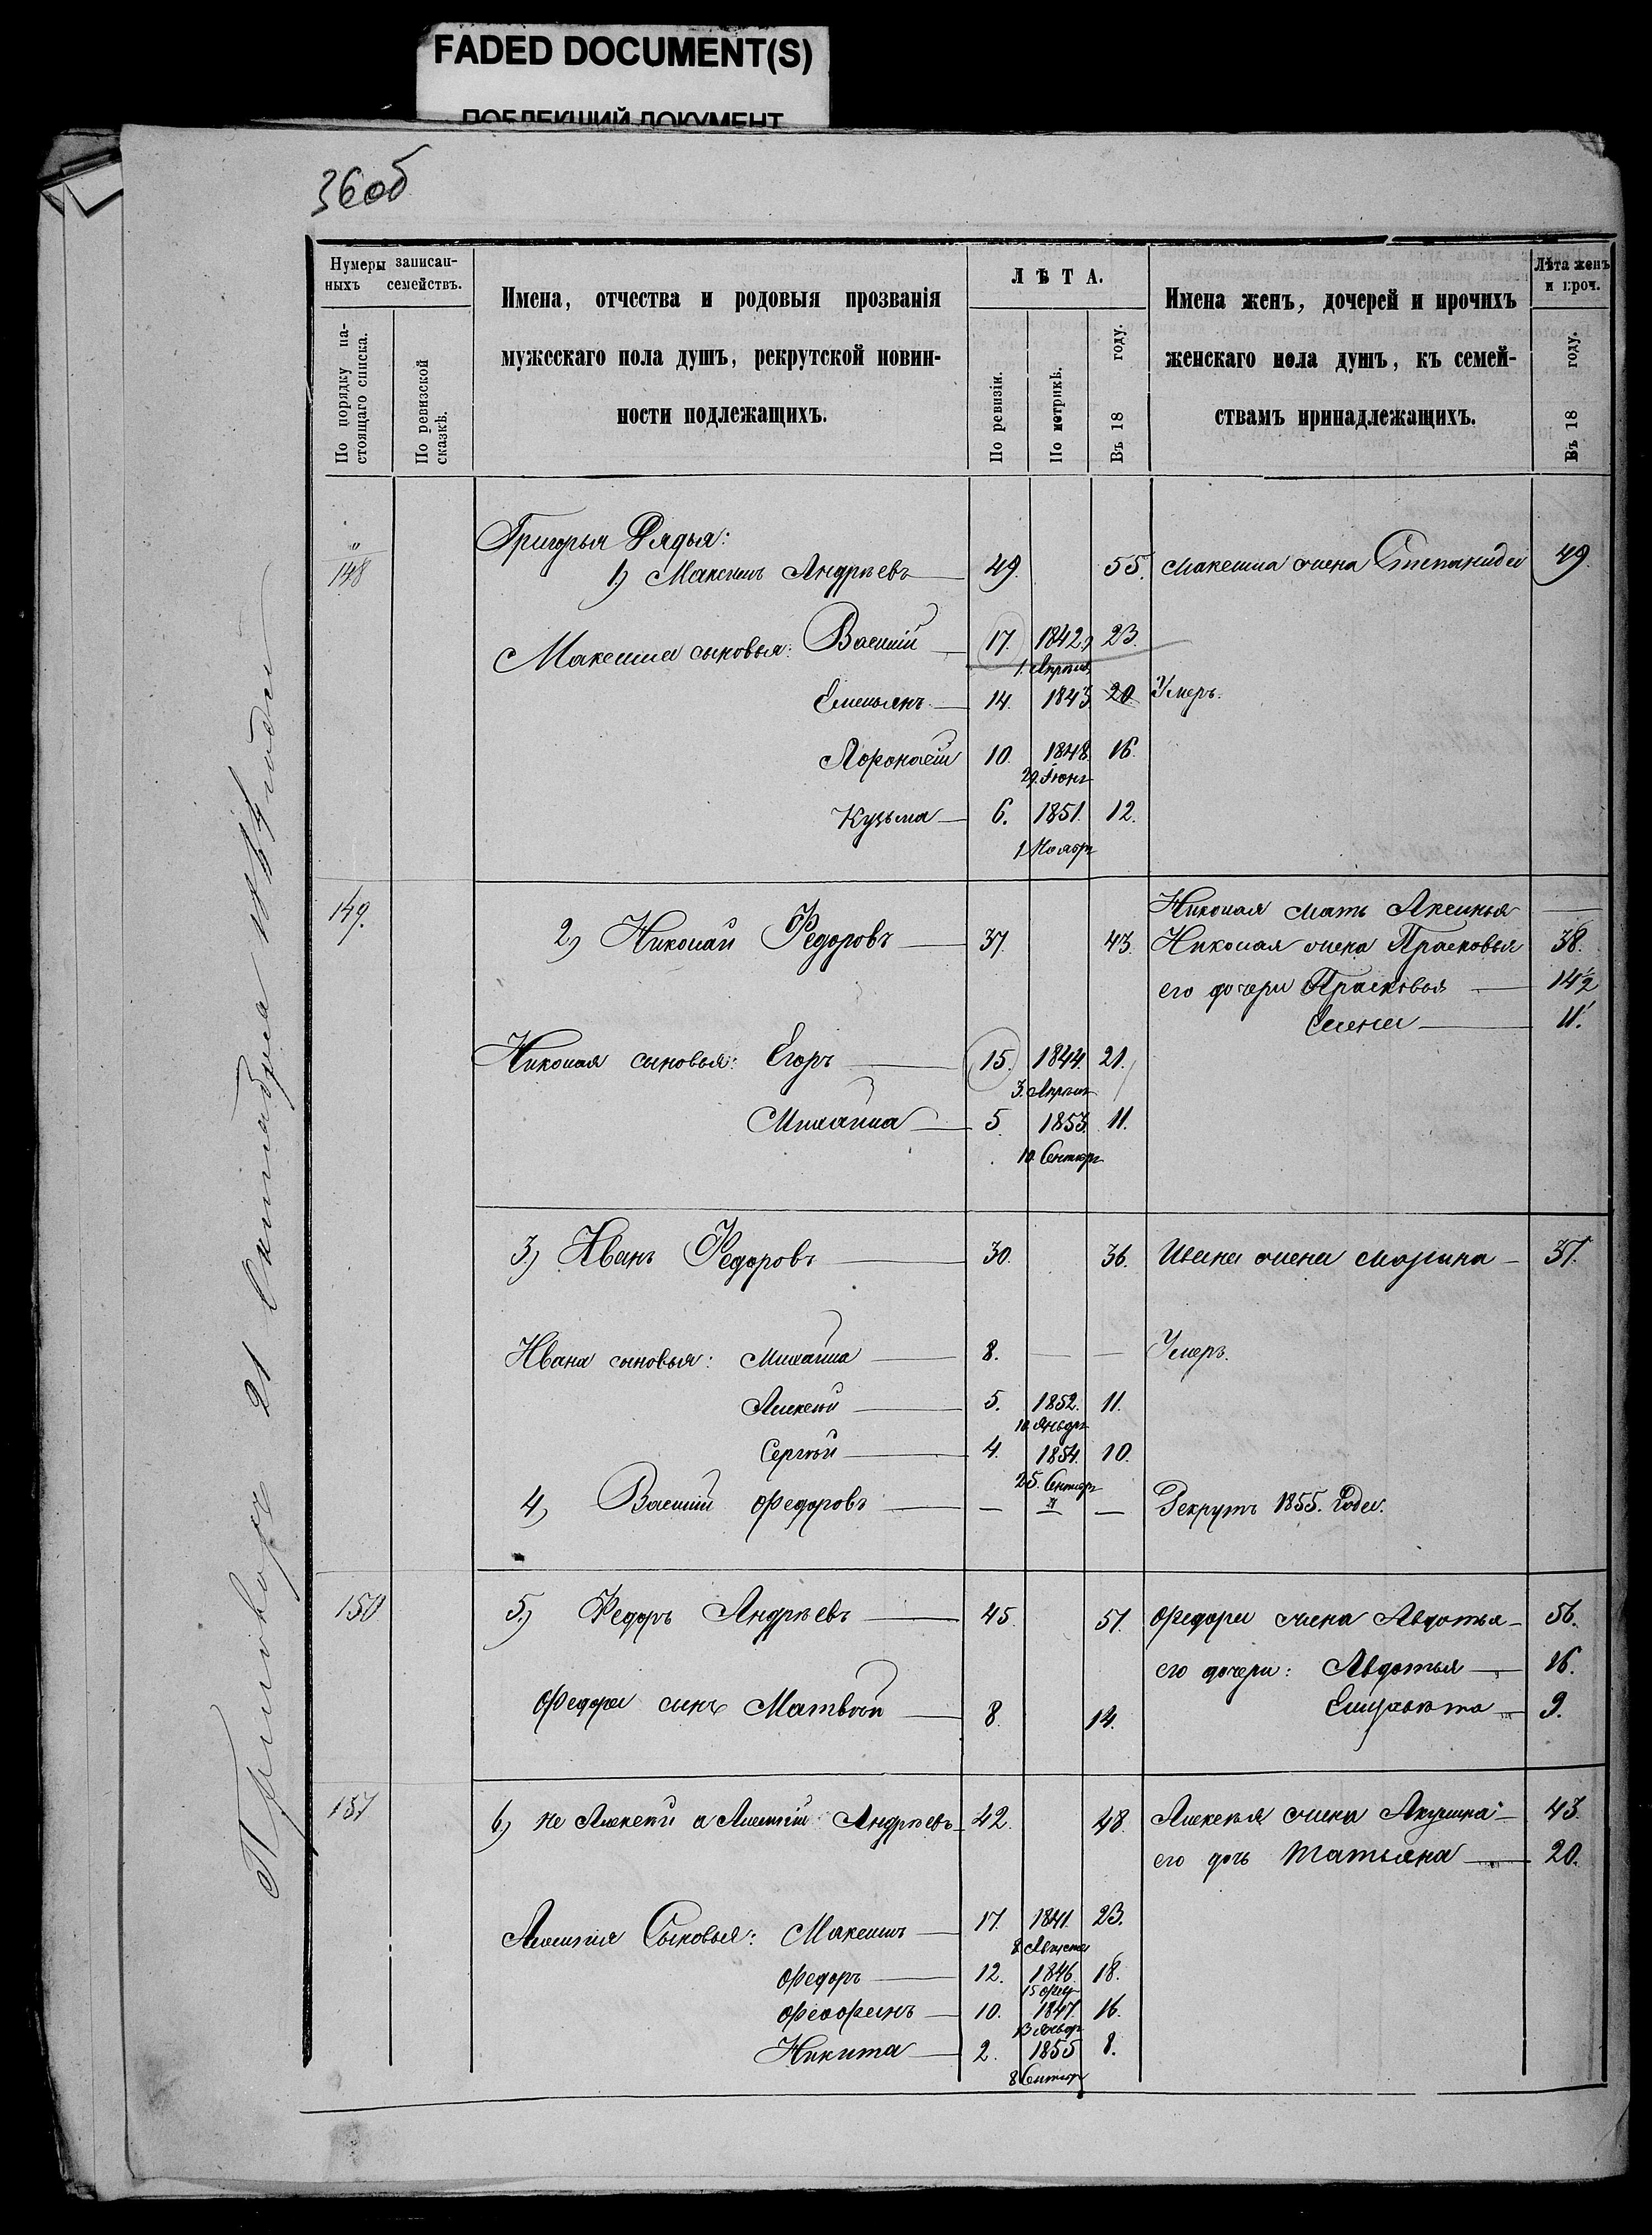 FADED DOCUMENT(S)
ПОБЛЕКШИЙ ДОКУМЕНТ
36об
Нумеры записан-
ныхъ семействъ.
По порядку на-
стоящаго списка.
По ревизской
сказкѣ.
Имена, отчества и родовыя прозванія
мужескаго пола душъ, рекрутской повин-
ности подлежащихъ.
ЛѢТА.
По ревизіи.
По метрикѣ.
Въ 18 году.
Имена женъ, дочерей и прочихъ
женскаго пола душъ, къ семей-
ствамъ принадлежащихъ.
Лѣта женъ
и проч.
Въ 18 году.
21 Октября 1864 года
" 148
Григорья Дядья:
1) Максимъ Андреевъ 49. 55. Максима жена Степанида 49.
Максима сыновья: Василій 17. 1842. 23.
1. Апрѣля
Емельянъ 14. 1843 20. Умеръ.
Афонасій 10. 1848. 16.
29 Іюня
Кузьма 6. 1851. 12.
1 Ноябр
149. Николая мать Аксинья —
2) Николай Федоровъ 37. 43. Николая жена Прасковья 38.
его дочери Прасковья 14½
Елена 11.
Николая сыновья: Егоръ 15. 1844. 21.
3. Апрѣля
Михайла 5 1853. 11.
10 Сентяр
3) Иванъ Федоровъ 30. 36. Ивана жена Марина 37.
Ивана сыновья: Михайла 8. — — Умеръ.
Алексѣй 5. 1852. 11.
10 Январ
Сергѣй 4. 1854. 10.
25. Сентяр
4) Василій Федоровъ — " — Рекрутъ 1855. Года.
150 5) Федоръ Андреевъ 45. 51. Федора жена Авдотья 56.
его дочери: Авдотья 16.
Елизавета 9.
Федора сынъ Матвѣй 8. 14.
151 6) не Алексѣй а Алексій Андреевъ 42. 48. Алексѣя жена Акулина 43.
его дочь Татьяна 20.
Сыновья: Максимъ 17. 1841. 23.
8 Августа
Федоръ 12. 1846. 18.
15 Фев
Феофанъ 10. 1847. 16.
13 Январ
Никита 2. 1855 8.
8 Сентяр